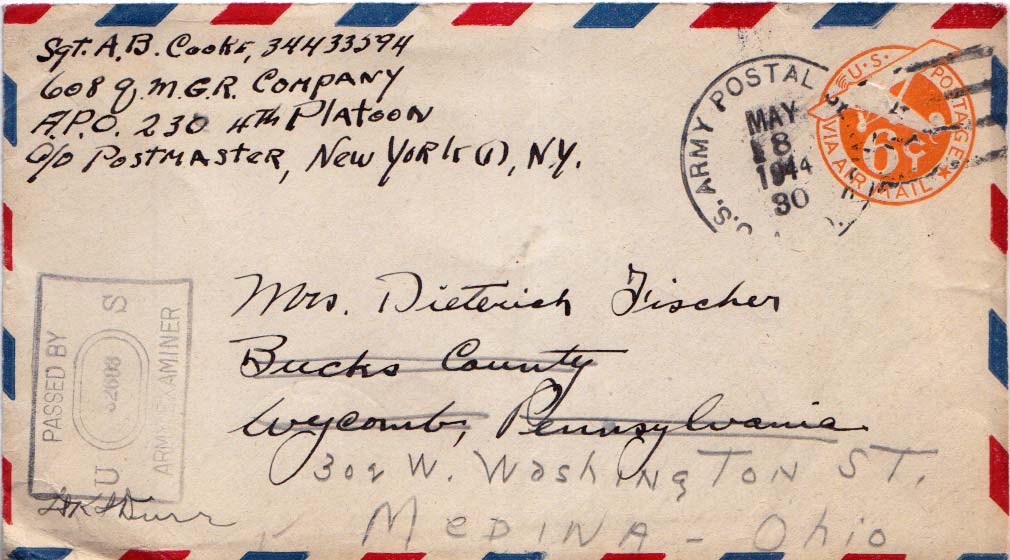 Sgt. A.B. Cooke, 34433594
608 Q.M.G.R. Company
A.P.O. 230 4th Platoon
c/o Postmaster, New York (1), N.Y.
U.S. ARMY POSTAL
MAY
8
1944
30
U.S. POSTAGE
6¢
VIA AIR MAIL
Mrs. Dieterich Fischer
Bucks County
Wycomb, Pennsylvania
302 W. Washington St.
Medina - Ohio
PASSED BY
U S
32608
ARMY EXAMINER